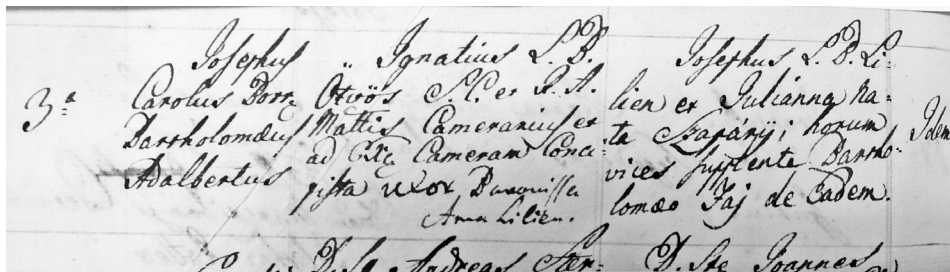 3ª
Josephus
Carolus Borr.
Bartholomæus
Adalbertus
Ignatius L. B.
Ötvös S. C. et R. A.
Mattis Camerarius et
ad Cameram Conci-
pista uxor Baronissa
Anna Lilien.
Josephus L. B. Li-
lien et Julianna na-
ta Szapáryi horum
vices supplente Bartho-
lomæo Faj de Eadem.
Idem
Andreas
Joannes